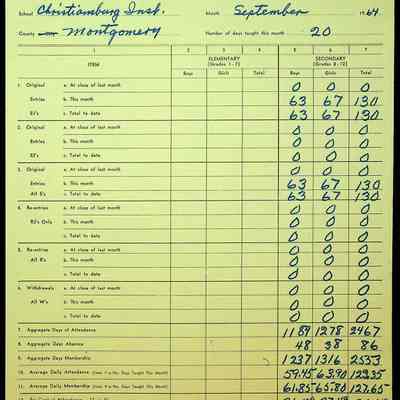 School Christiansburg Inst. Month September 1964
County or Montgomery Number of days taught this month 20
1 2 3 4 5 6 7
ITEM ELEMENTARY (Grades 1-7) SECONDARY (Grades 8-12)
Boys Girls Total Boys Girls Total
1. Original a. At close of last month 0 0 0
Entries b. This month 63 67 130
E1's c. Total to date 63 67 130
2. Original a. At close of last month 0 0 0
Entries b. This month 0 0 0
E2's c. Total to date 0 0 0
3. Original a. At close of last month 0 0 0
Entries b. This month 63 67 130
All E's c. Total to date 63 67 130
4. Re-entries a. At close of last month 0 0 0
R3's Only b. This month 0 0 0
c. Total to date 0 0 0
5. Re-entries a. At close of last month 0 0 0
All R's b. This month 0 0 0
c. Total to date 0 0 0
6. Withdrawals a. At close of last month 0 0 0
All W's b. This month 0 0 0
c. Total to date 0 0 0
7. Aggregate Days of Attendance 1189 1278 2467
8. Aggregate Days Absence 48 38 86
9. Aggregate Days Membership 1237 1316 2553
10. Average Daily Attendance (Item 7 ÷ No. Days Taught This Month) 59.45 63.90 123.35
11. Average Daily Membership (Item 9 ÷ No. Days Taught This Month) 61.85 65.80 127.65